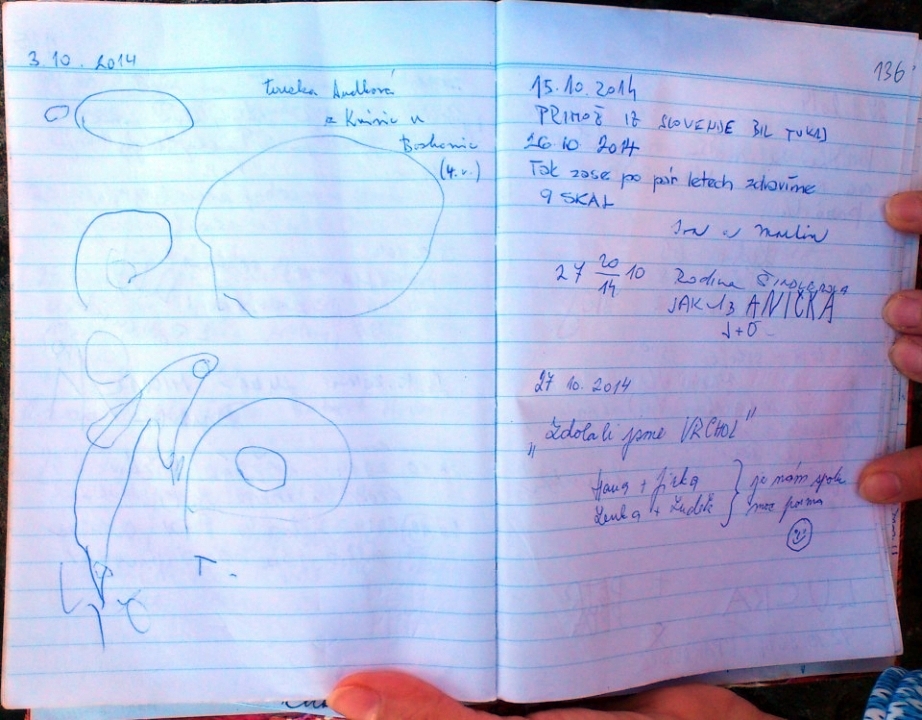 3.10.2014
z Kninic u
Boskovic
(4.r.)
136
15.10.2014
PRIMOŽ IZ SLOVENIJE BIL TUKAJ
26.10.2014
Tak zase po pár letech zdravíme
9 SKAL
a Martin
27 20/14 10 Rodina
JAKUB ANIČKA
J+O
27.10.2014
„Zdolali jsme VRCHOL"
Hana + Jirka } je nám spolu
Lenka + Luděk